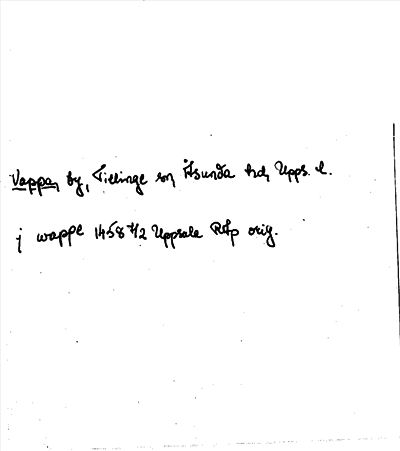 Vappa, by, Tillinge sn, Åsunda hd, Upps. l.
j wappe 1458 7/2 Uppsala RAp orig.